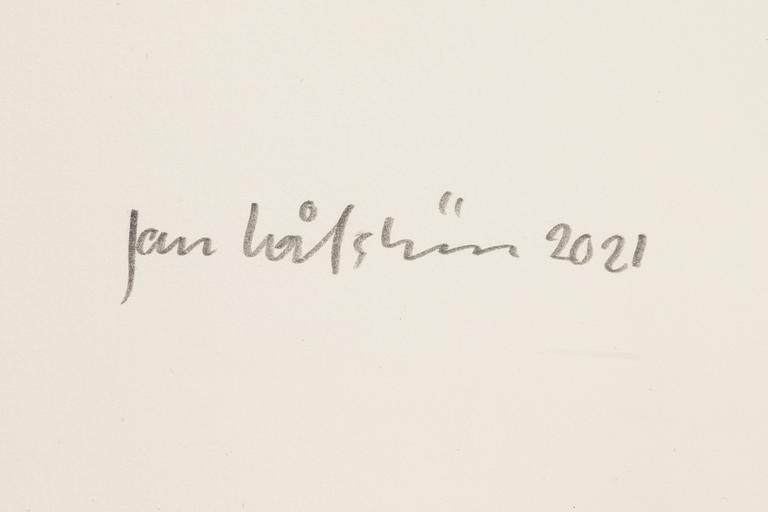 Jan Håfström 2021